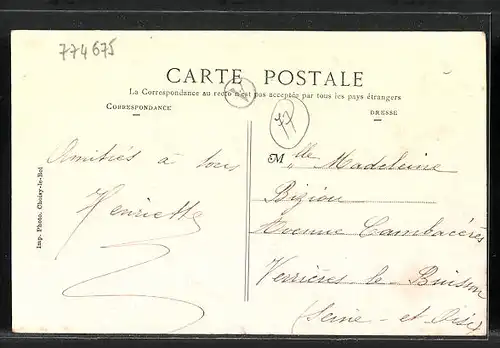 774675
CARTE POSTALE
La Correspondance au recto n'est pas acceptée par tous les pays étrangers
CORRESPONDANCE
DRESSE
77
Amitiés à tous
Henriette
Mlle Madeleine
Bizion
Avenue Cambacérès
Verrières le Buisson
(Seine-et-Oise)
Imp. Photo. Choisy-le-Roi